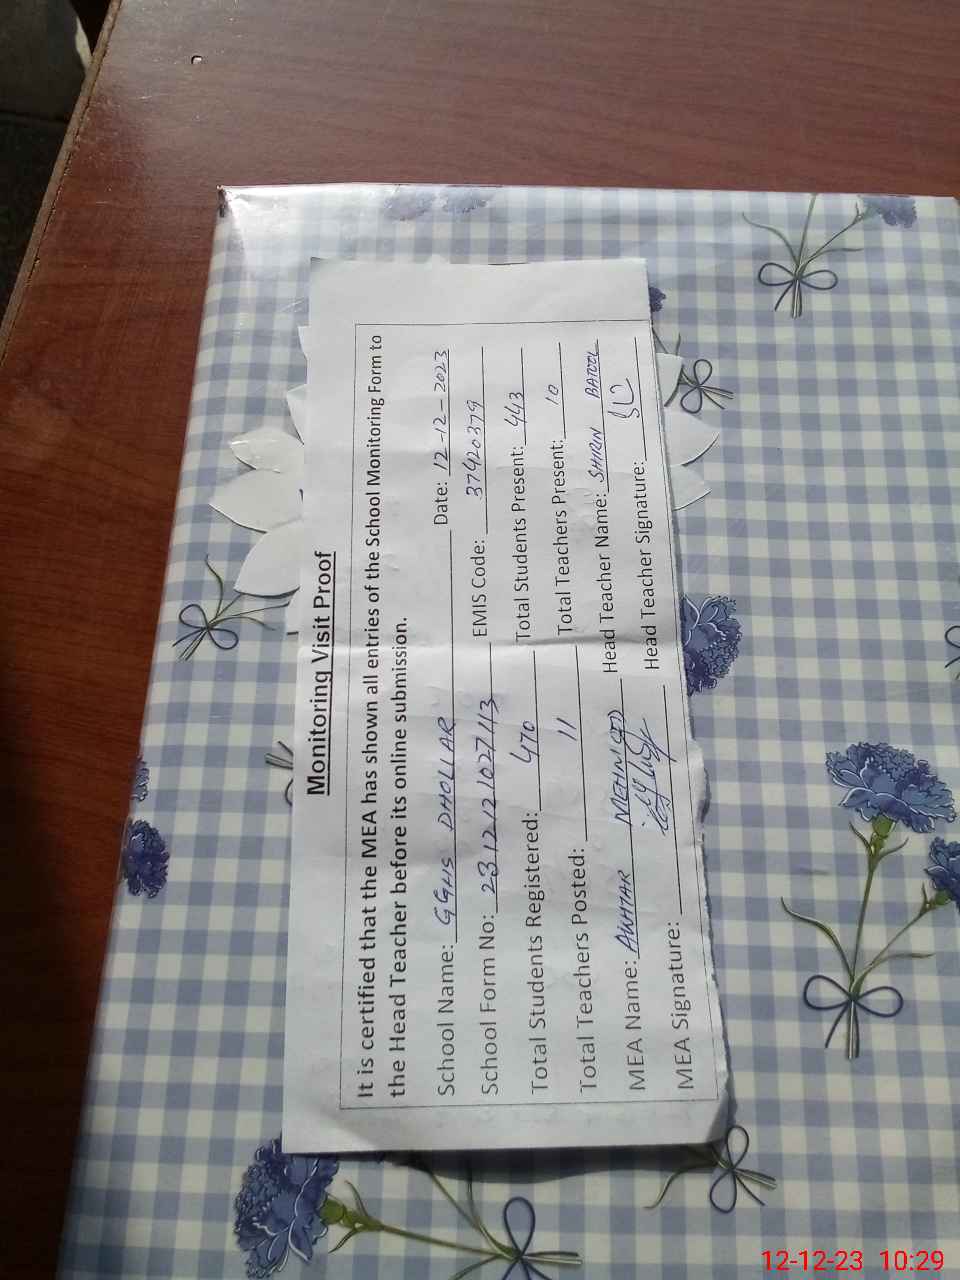 Monitoring Visit Proof
It is certified that the MEA has shown all entries of the School Monitoring Form to
the Head Teacher before its online submission.
School Name: GGHS DHOLLAR Date: 12-12-2023
School Form No: 2312121027113 EMIS Code: 37420379
Total Students Registered: 470 Total Students Present: 443
Total Teachers Posted: 11 Total Teachers Present: 10
MEA Name: AKHTAR MEHMOOD Head Teacher Name: SHIRIN BATOOL
MEA Signature: Head Teacher Signature:
12-12-23 10:29